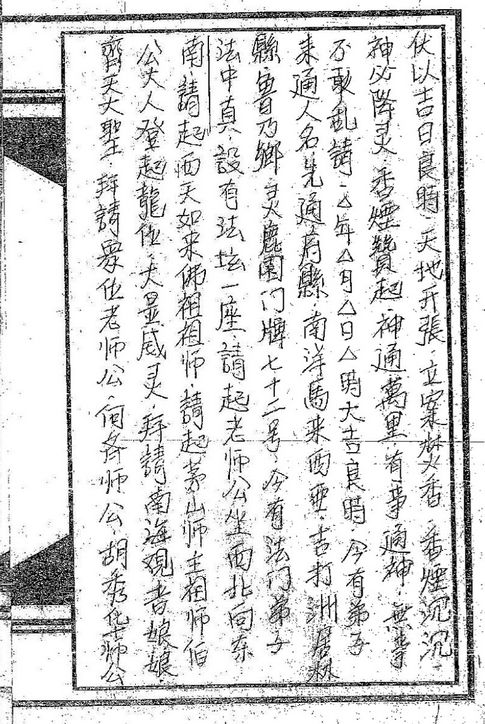 伏以吉日良時·天地开張·立案焚香·香煙沉沉·
神必降灵·香煙贊起·神通萬里有事通神·無事
不敢乱請·△年△月△日△時大吉良時·今有弟子
来通人名先通府縣·南洋馬来西亜·吉打洲居林
縣·魯乃鄉·美鹿園门牌七十二号·今有法门弟子
法中真·設有法坛一座·請起老师公坐西北向东
南·請起西天如来佛祖祖师·請起茅山师主祖师伯
公大人登起龍位·大显威灵·拜請南海观音娘娘
齊天大聖·拜請众位老师公·何各师公·胡秀华师公